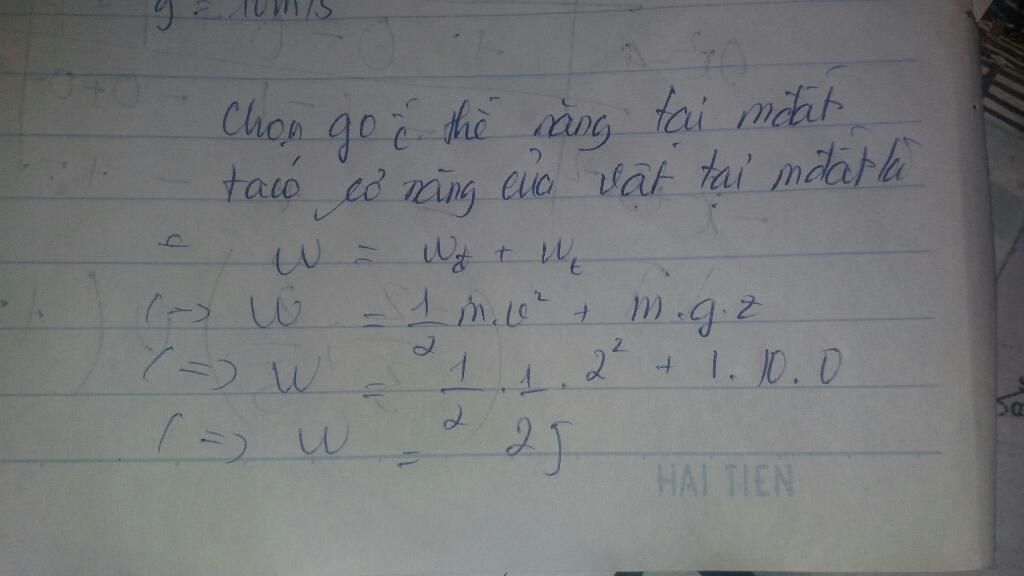 g = 10m/s
Chọn gốc thế năng tại mđất
ta có cơ năng của vật tại mđất là
W = Wđ + Wt
(=> W = 1/2 m.v² + m.g.z
(=> W = 1/2 . 1 . 2² + 1. 10. 0
(=> W = 2J
HAI TIEN